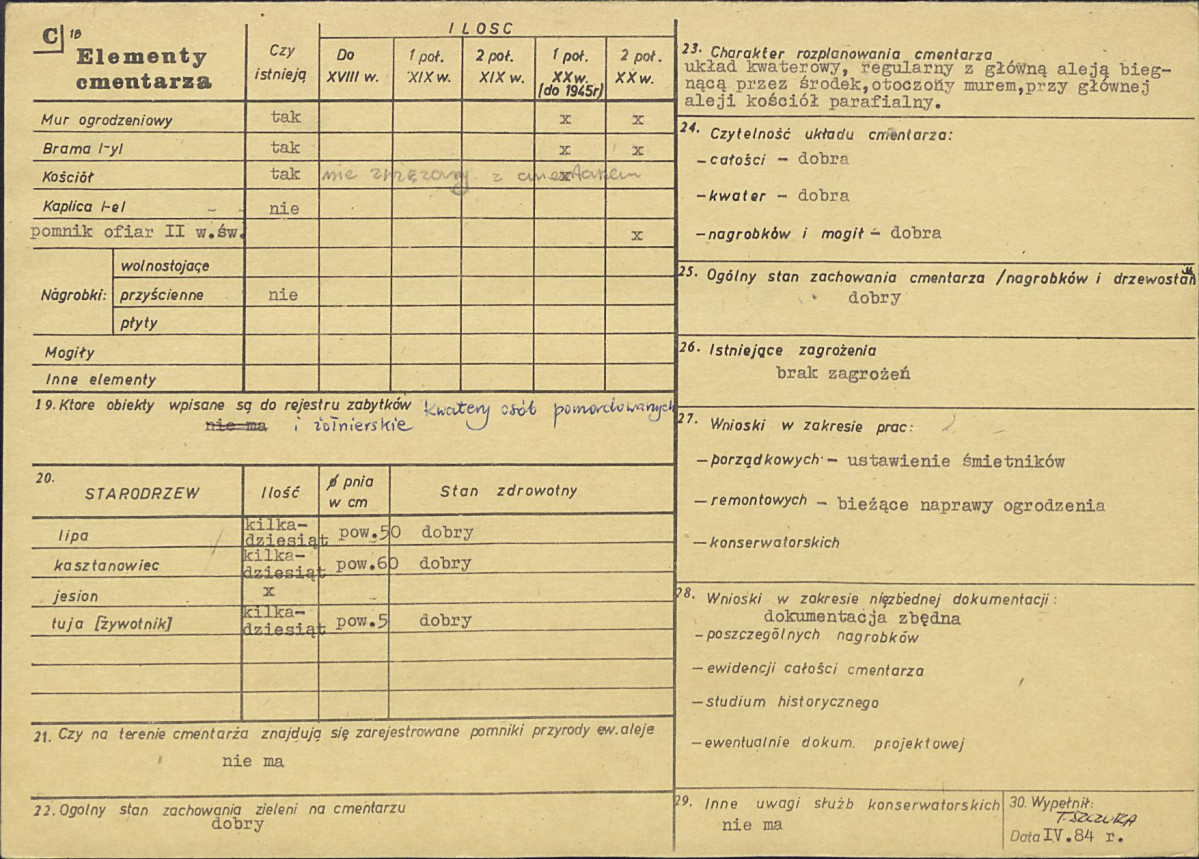 C 18
Elementy cmentarza
Czy istnieją
ILOSC
Do XVIII w.
1 poł. XIX w.
2 poł. XIX w.
1 poł. XX w. (do 1945r)
2 poł. XX w.
Mur ogrodzeniowy tak x x
Brama /-y/ tak x x
Kościół tak nie związany z cmentarzem x
Kaplica /-e/ - - nie
pomnik ofiar II w.św. x
Nagrobki:
wolnostojące
przyścienne nie
płyty
Mogiły
Inne elementy
19. Ktore obiekty wpisane są do rejestru zabytków kwatery osób pomordowanych
nie ma i żołnierskie
20.
STARODRZEW Ilość ø pnia w cm Stan zdrowotny
lipa kilka-dziesiąt pow.50 dobry
kasztanowiec kilka-dziesiąt pow.60 dobry
jesion x
tuja [żywotnik] kilka-dziesiąt pow.5 dobry
21. Czy na terenie cmentarza znajdują się zarejestrowane pomniki przyrody ew. aleje
nie ma
22. Ogolny stan zachowania zieleni na cmentarzu
dobry
23. Charakter rozplanowania cmentarza
układ kwaterowy, regularny z główną aleją bieg-
nącą przez środek,otoczony murem,przy głównej
aleji kościół parafialny.
24. Czytelność układu cmentarza:
- całości - dobra
- kwater - dobra
- nagrobków i mogił - dobra
25. Ogólny stan zachowania cmentarza /nagrobków i drzewostan
dobry
26. Istniejące zagrożenia
brak zagrożeń
27. Wnioski w zakresie prac:
- porządkowych - ustawienie śmietników
- remontowych - bieżące naprawy ogrodzenia
- konserwatorskich
28. Wnioski w zakresie niezbędnej dokumentacji:
dokumentacja zbędna
- poszczególnych nagrobków
- ewidencji całości cmentarza
- studium historycznego
- ewentualnie dokum. projektowej
29. Inne uwagi służb konserwatorskich
nie ma
30. Wypełnił:
T. SZCZUKA
Data IV.84 r.